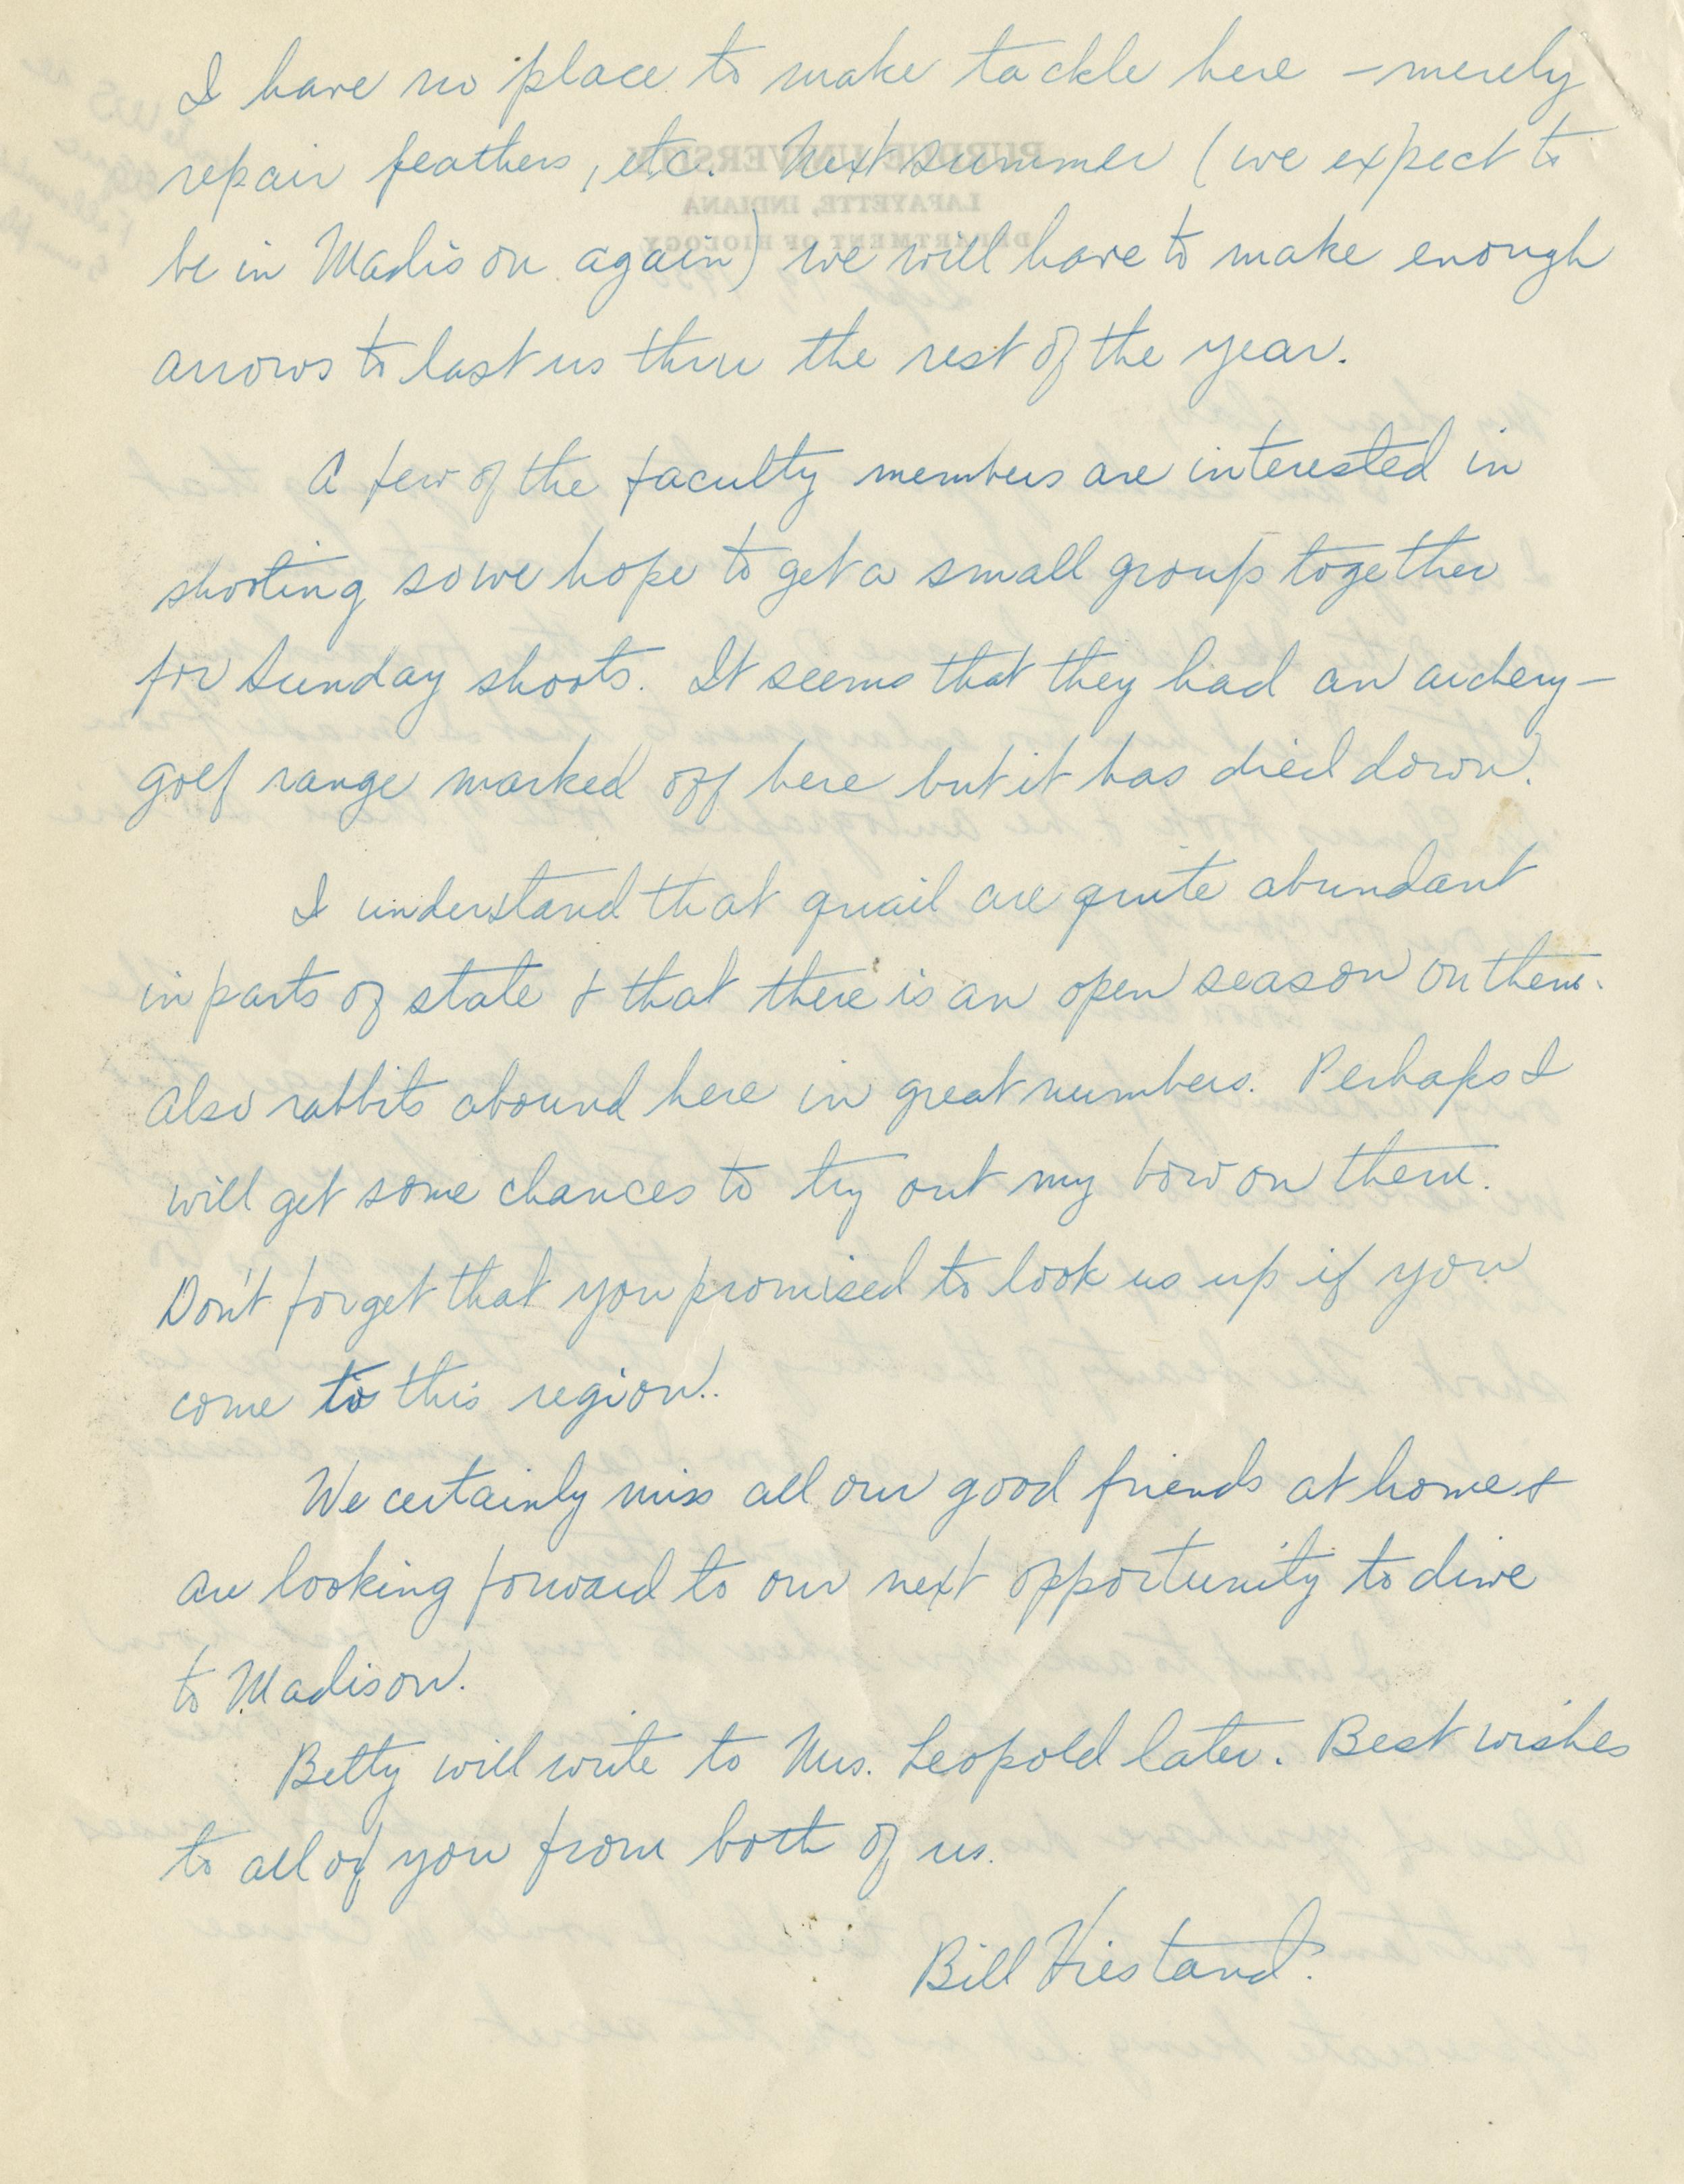 I have no place to make tackle here – merely
repair feathers, etc. Next summer (we expect to
be in Madison again) we will have to make enough
arrows to last us thru the rest of the year.
A few of the faculty members are interested in
shooting so we hope to get a small group together
for Sunday shoots. It seems that they had an archery-
golf range marked off here but it has died down.
I understand that quail are quite abundant
in parts of state & that there is an open season on them.
Also rabbits abound here in great numbers. Perhaps I
will get some chances to try out my bow on them.
Don't forget that you promised to look us up if you
come to this region.
We certainly miss all our good friends at home &
are looking forward to our next opportunity to drive
to Madison.
Betty will write to Mrs. Leopold later. Best wishes
to all of you from both of us.
Bill Hiestand.
PURDUE UNIVERSITY
LAFAYETTE, INDIANA
DEPARTMENT OF BIOLOGY